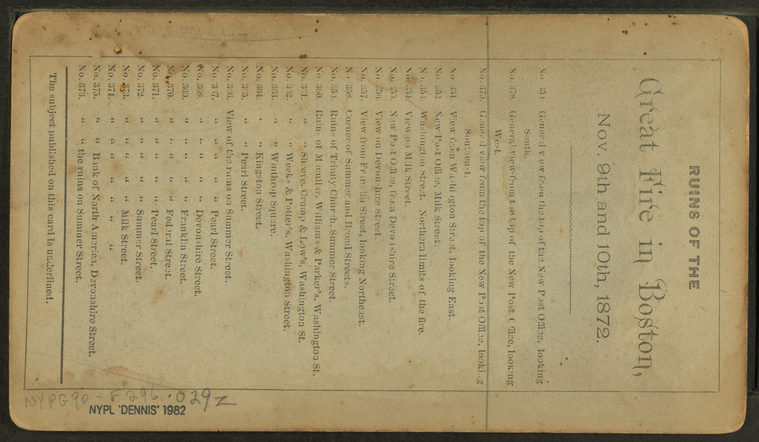 RUINS OF THE
Great Fire in Boston,
Nov. 9th and 10th, 1872.
General view from the top of the New Post Office, looking
South.
No. 378. General view from the top of the New Post Office, looking
West.
General view from the top of the New Post Office, looking
No. 351. View from Washington Street, looking East.
No. 352. New Post Office, Milk Street.
No. 353. Washington Street. Northern limits of the fire.
No. 354. View on Milk Street.
No. 355. New Post Office, from Devonshire Street.
No. 356. View on Devonshire Street.
No. 357. View from Franklin Street, looking Northeast.
No. 358. Corner of Summer and Broad Streets.
No. 359. Ruins of Trinity Church, Summer Street.
No. 360. Ruins of Macullar, Williams & Parker's, Washington St.
No. 361. " " Shreve, Crump & Low's, Washington St.
No. 362. " " Weeks & Potter's, Washington Street.
No. 363. " " Winthrop Square.
No. 364. " " Kingston Street.
No. 365. " " Pearl Street.
No. 366. View of the ruins on Summer Street.
No. 367. " " " " Pearl Street.
No. 368. " " " " Devonshire Street.
No. 369. " " " " Franklin Street.
No. 370. " " " " Federal Street.
No. 371. " " " " Pearl Street.
No. 372. " " " " Summer Street.
No. 373. " " " " Milk Street.
No. 374. " " " " "
No. 375. " " Bank of North America, Devonshire Street.
No. 376. " " the ruins on Summer Street.
The subject published on this card is underlined.
NYPG90-F296 .029z
NYPL 'DENNIS' 1982